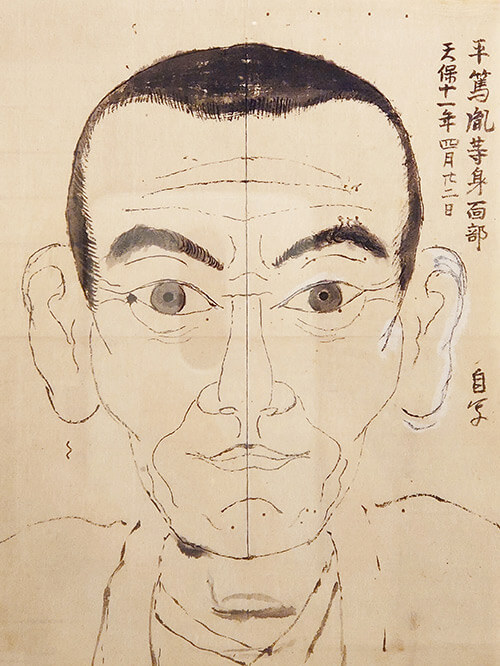 平篤胤等身面部
天保十一年四月廿二日
自写